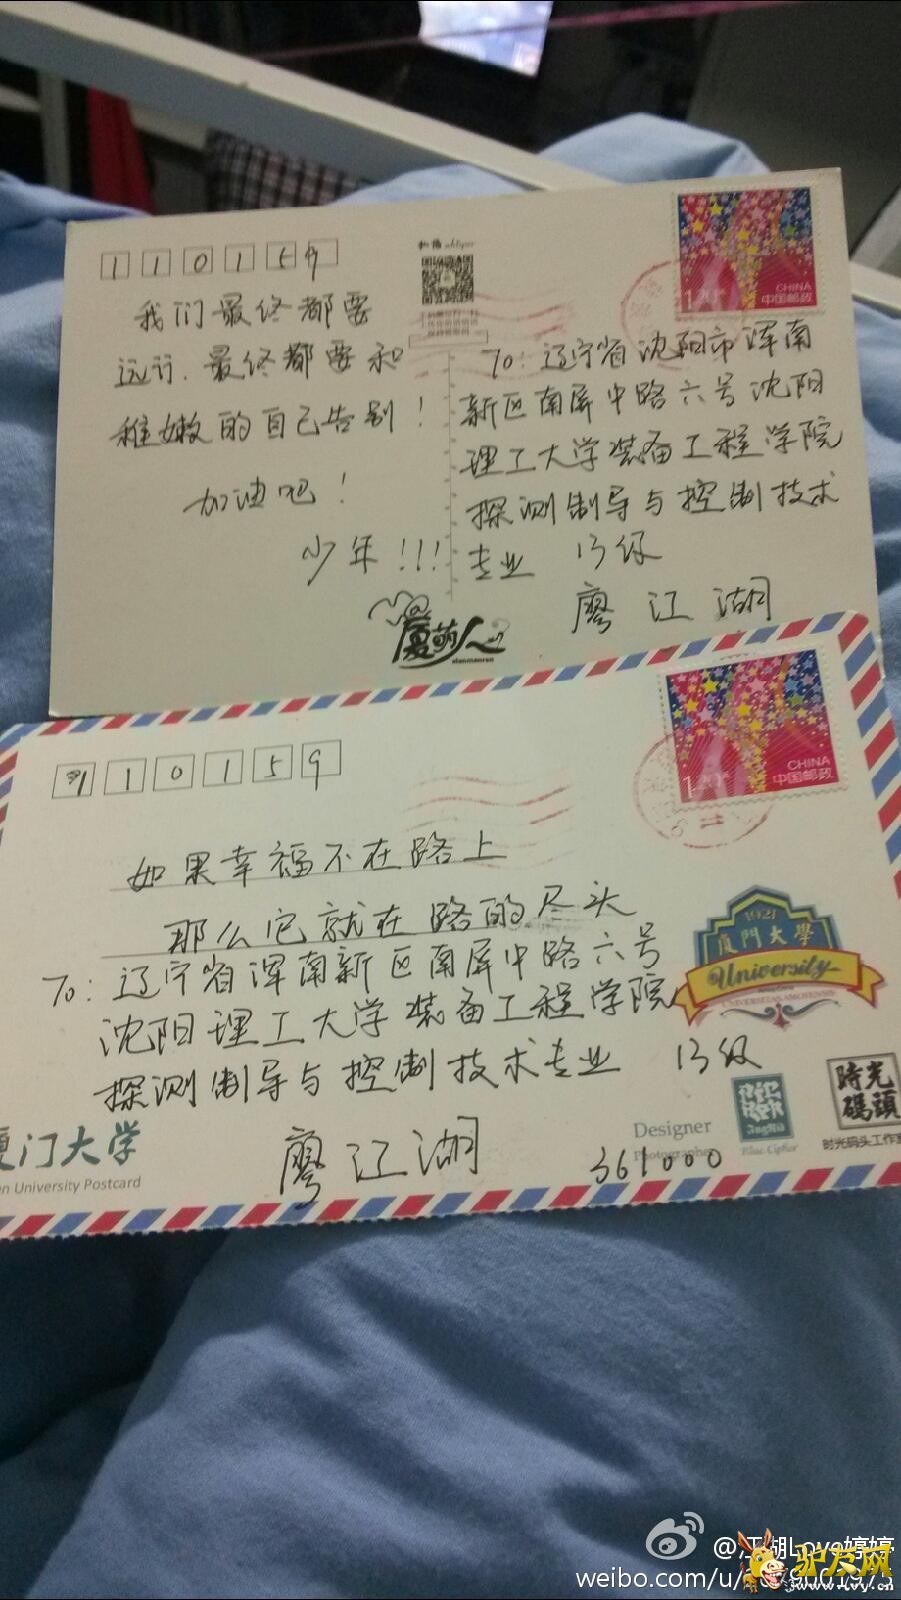 110159
CHINA
1.20元
中国邮政
我们最终都要
远行.最终都要和
稚嫩的自己告别!
加油吧!
少年!!!
To:辽宁省沈阳市浑南
新区南屏中路六号沈阳
理工大学装备工程学院
探测制导与控制技术
专业 13级
廖江湖
厦萌人
xiamenren
110159
CHINA
1.20元
中国邮政
如果幸福不在路上
那么它就在路的尽头
To:辽宁省浑南新区南屏中路六号
沈阳理工大学装备工程学院
探测制导与控制技术专业 13级
廖江湖
361000
1921
厦門大學
University
UNIVERSITAS AMOIENSIS
厦门大学
en University Postcard
Designer
Photographer
Blue Cipher
時光
碼頭
时光码头工作室
@江湖Love婷婷
weibo.com/u/
驴友网